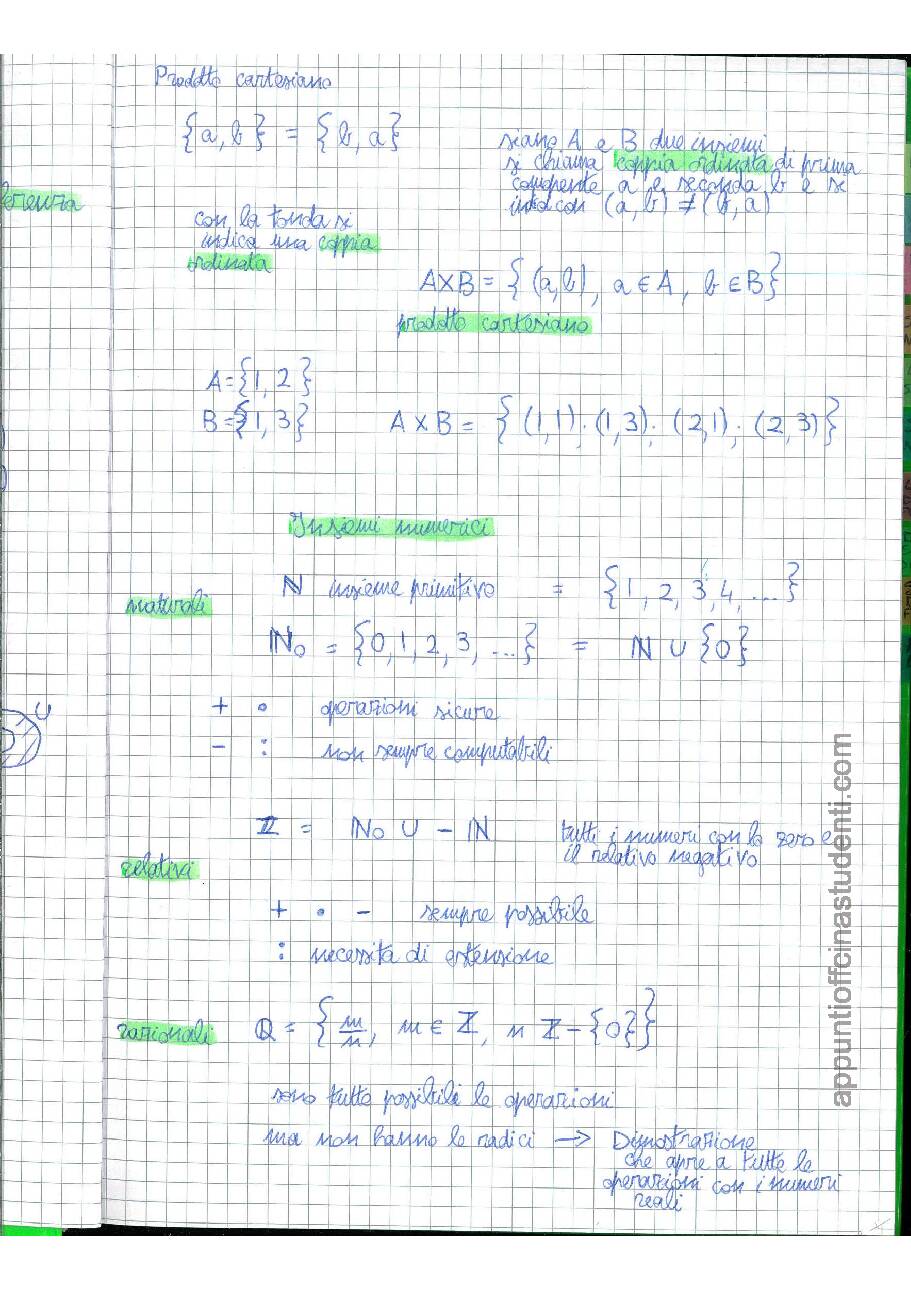 Prodotto cartesiano
{a, b} = {b, a}
siano A e B due insiemi
si chiama coppia ordinata di prima
componente a e seconda b e si
con (a, b) ≠ (b, a)
con la tonda si
indica una coppia
ordinata
A×B = { (a,b), a ∈ A, b ∈ B}
prodotto cartesiano
A={1, 2}
B={1, 3}
A × B = { (1,1); (1,3); (2,1); (2,3)}
Insiemi numerici
naturali
ℕ insieme primitivo = {1, 2, 3, 4, ...}
ℕ₀ = {0, 1, 2, 3, ...} = ℕ ∪ {0}
+ • operazioni sicure
- : non sempre computabili
ℤ = ℕ₀ ∪ - ℕ
tutti i numeri con lo zero e
il relativo negativo
relativi
+ • - sempre possibile
: necessita di estensione
razionali
Q = { m/n, m ∈ ℤ, n ℤ - {0}}
sono tutte possibili le operazioni
ma non hanno le radici → Dimostrazione
che apre a tutte le
operazioni con i numeri
reali
U
appuntioffcinastudenti.com